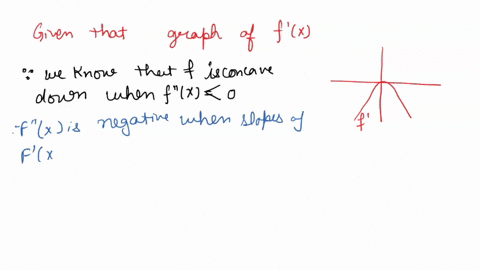 Given that graph of f'(x)
∵ we know that f isconcave
down when f"(x) < 0
∵ f"(x) is negative when slopes of
F'(x
f'